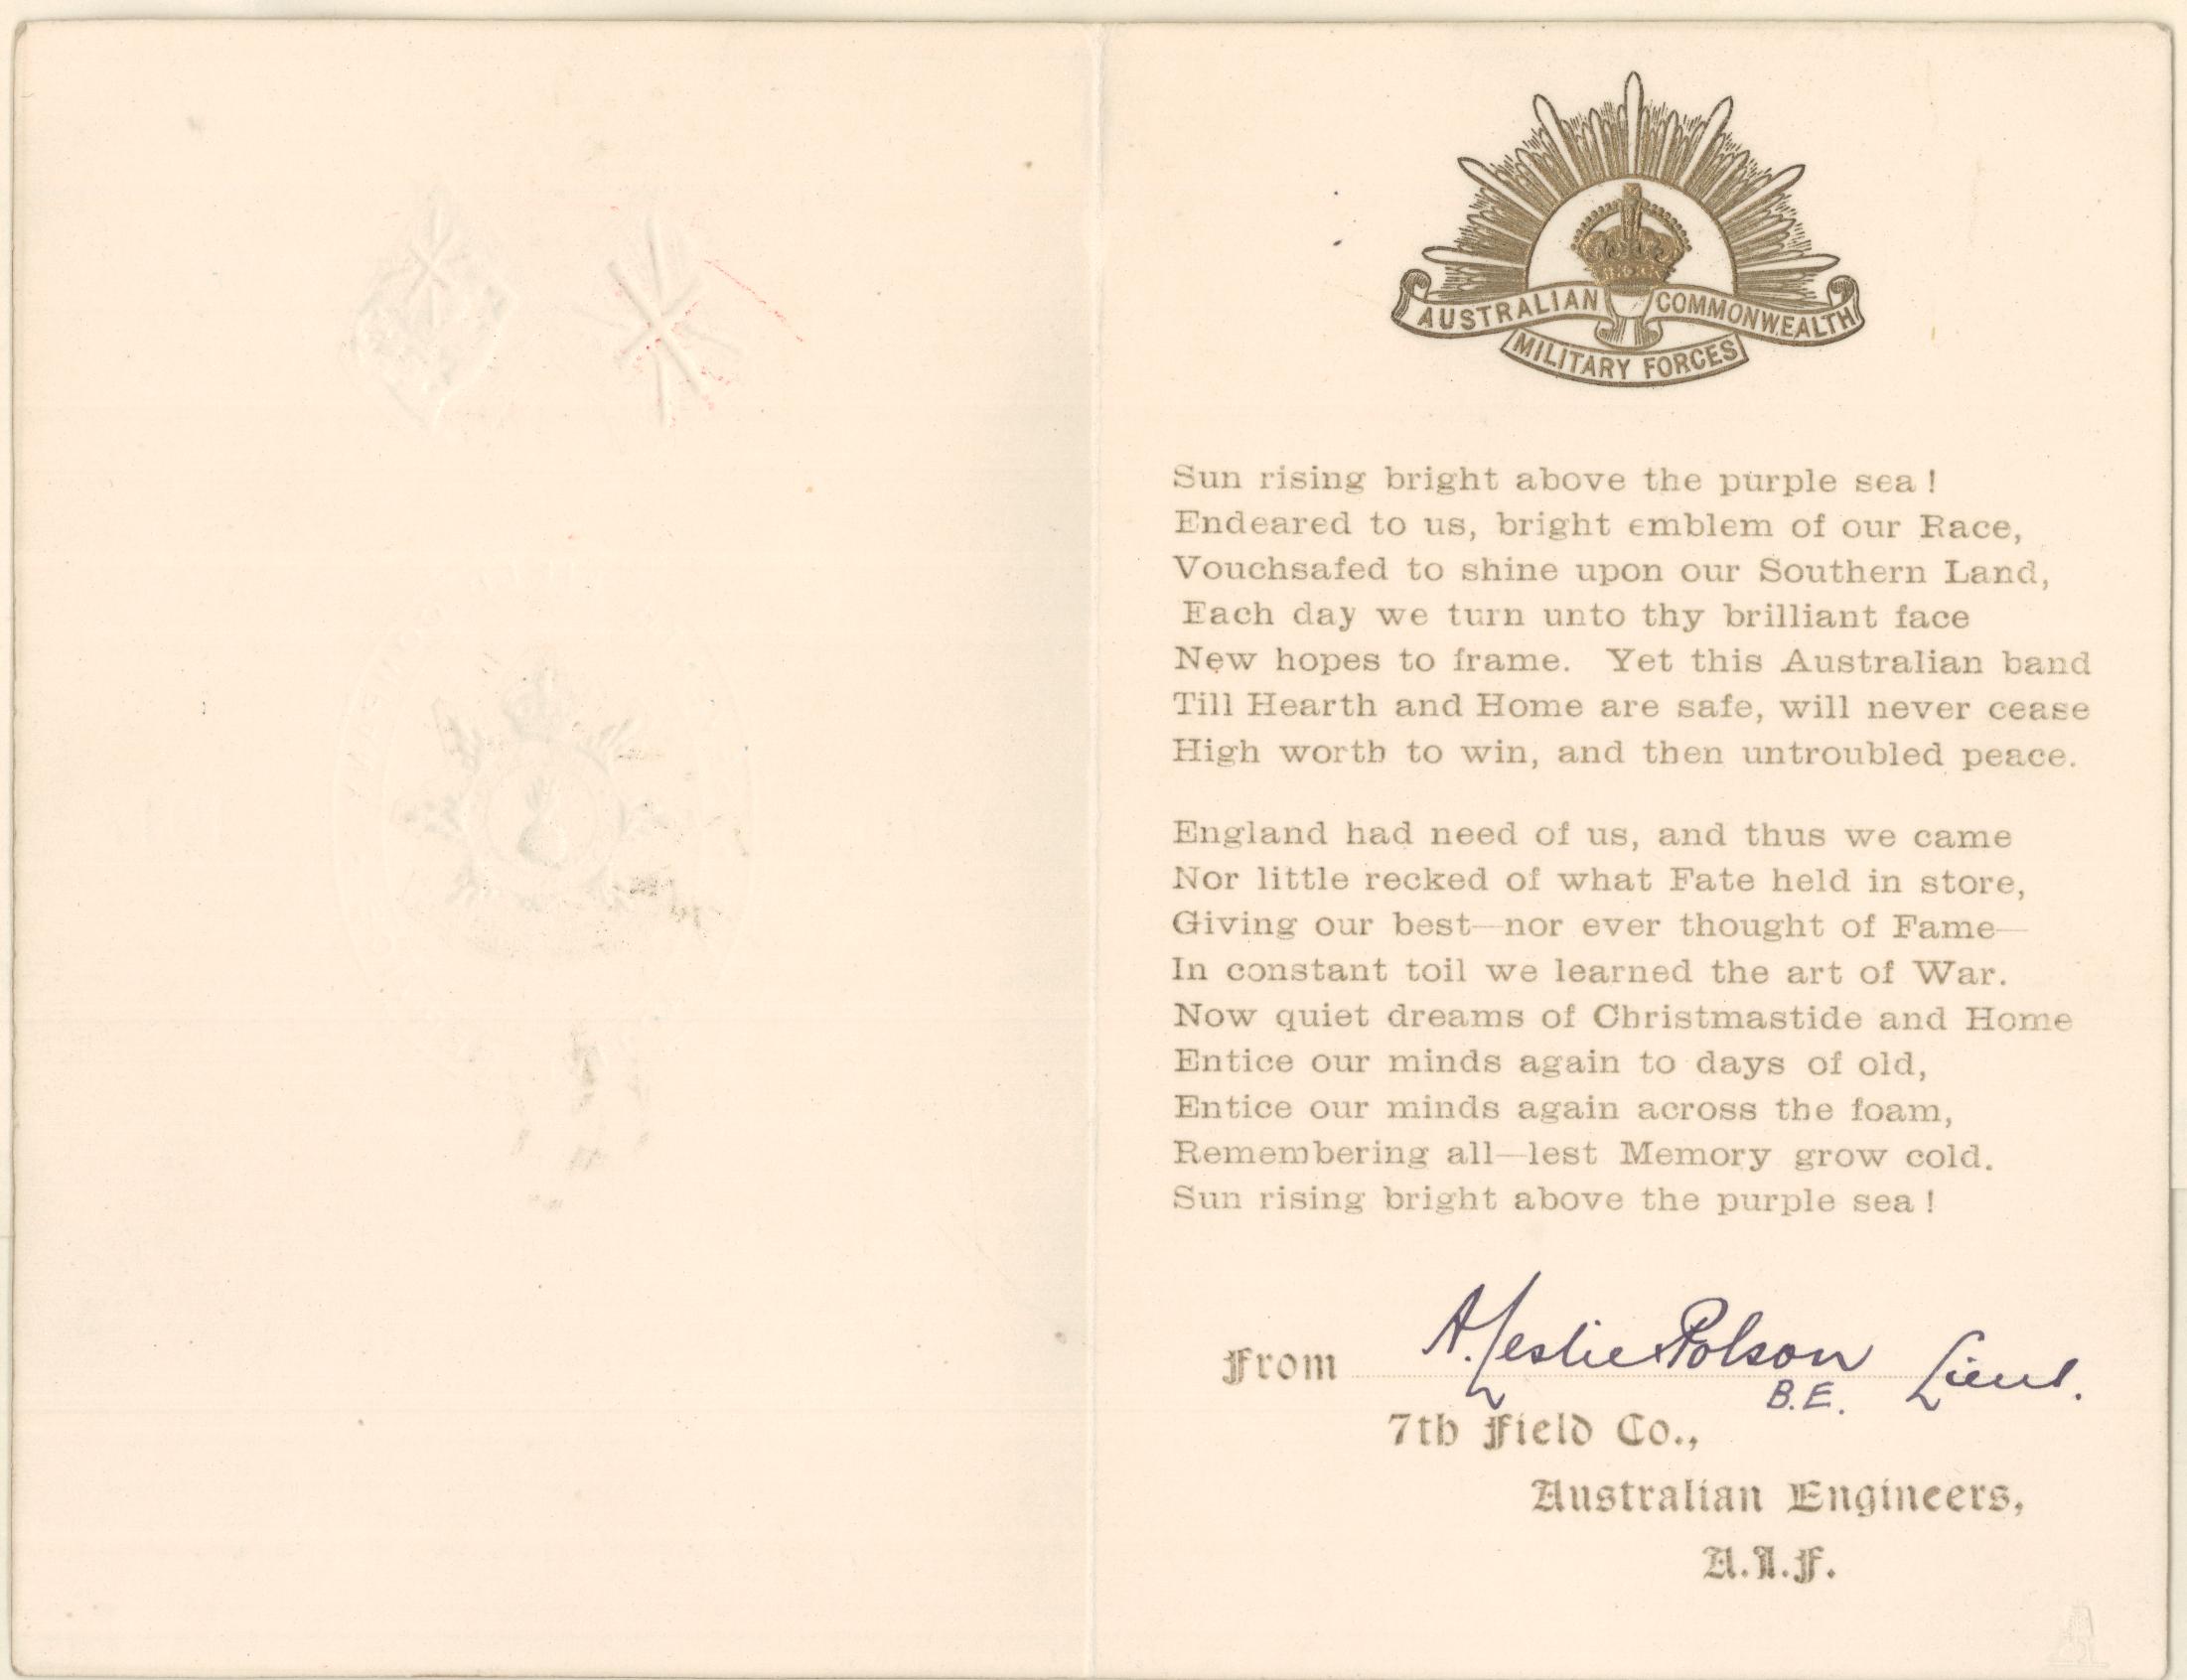 AUSTRALIAN COMMONWEALTH
MILITARY FORCES
Sun rising bright above the purple sea!
Endeared to us, bright emblem of our Race,
Vouchsafed to shine upon our Southern Land,
Each day we turn unto thy brilliant face
New hopes to frame. Yet this Australian band
Till Hearth and Home are safe, will never cease
High worth to win, and then untroubled peace.
England had need of us, and thus we came
Nor little recked of what Fate held in store,
Giving our best—nor ever thought of Fame—
In constant toil we learned the art of War.
Now quiet dreams of Christmastide and Home
Entice our minds again to days of old,
Entice our minds again across the foam,
Remembering all—lest Memory grow cold.
Sun rising bright above the purple sea!
From A. Leslie Polson Lieut.
B.E.
7th Field Co.,
Australian Engineers,
A.I.F.